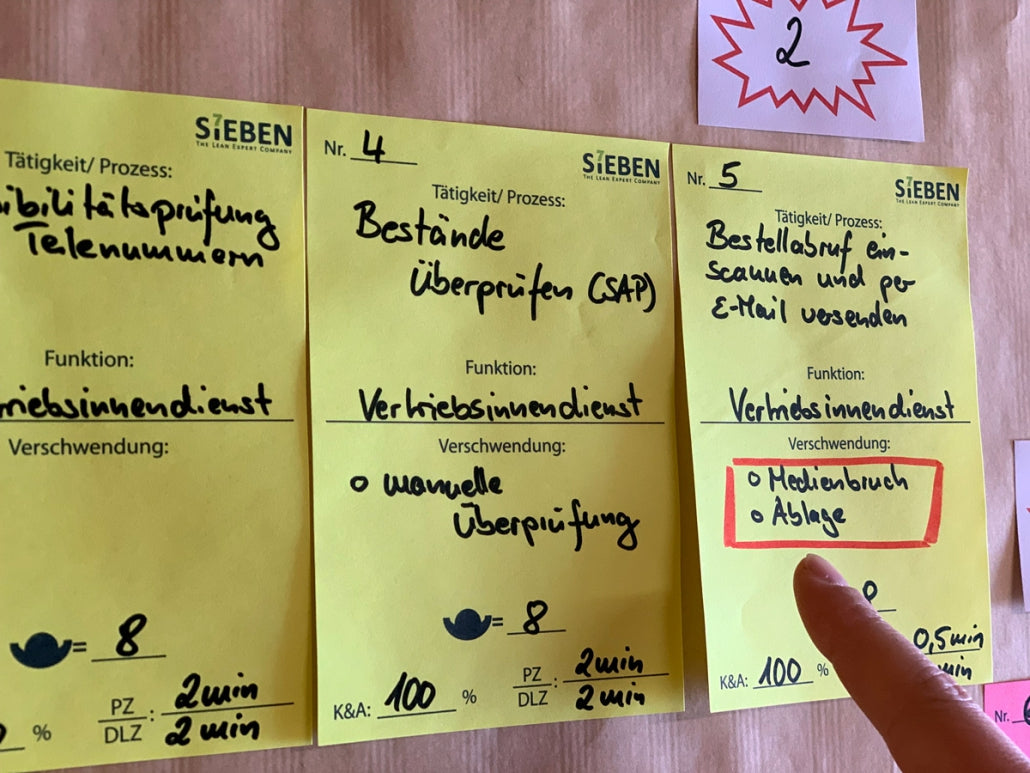 2
SIEBEN
7
THE LEAN EXPERT COMPANY
Tätigkeit/ Prozess:
Teilenummern
Funktion:
Verschwendung:
= 8
%
PZ
DLZ
:
2 min
2 min
Nr. 4
SIEBEN
7
THE LEAN EXPERT COMPANY
Tätigkeit/ Prozess:
Bestände
Überprüfen (SAP)
Funktion:
Vertriebsinnendienst
Verschwendung:
o manuelle
Überprüfung
= 8
K&A: 100 %
PZ
DLZ
:
2 min
2 min
Nr. 5
SIEBEN
7
THE LEAN EXPERT COMPANY
Tätigkeit/ Prozess:
Bestellabruf ein-
scannen und per
E-Mail versenden
Funktion:
Vertriebsinnendienst
Verschwendung:
o Medienbruch
o Ablage
K&A: 100 %
0,5 min
min
Nr.